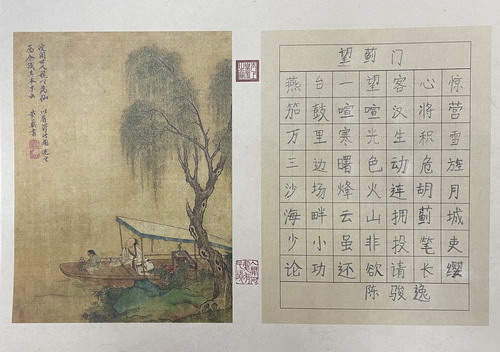 望蓟门
燕台一望客心惊
笳鼓喧喧汉将营
万里寒光生积雪
三边曙色动危旌
沙场烽火连胡月
海畔云山拥蓟城
少小虽非投笔吏
论功还欲请长缨
陈骏逸